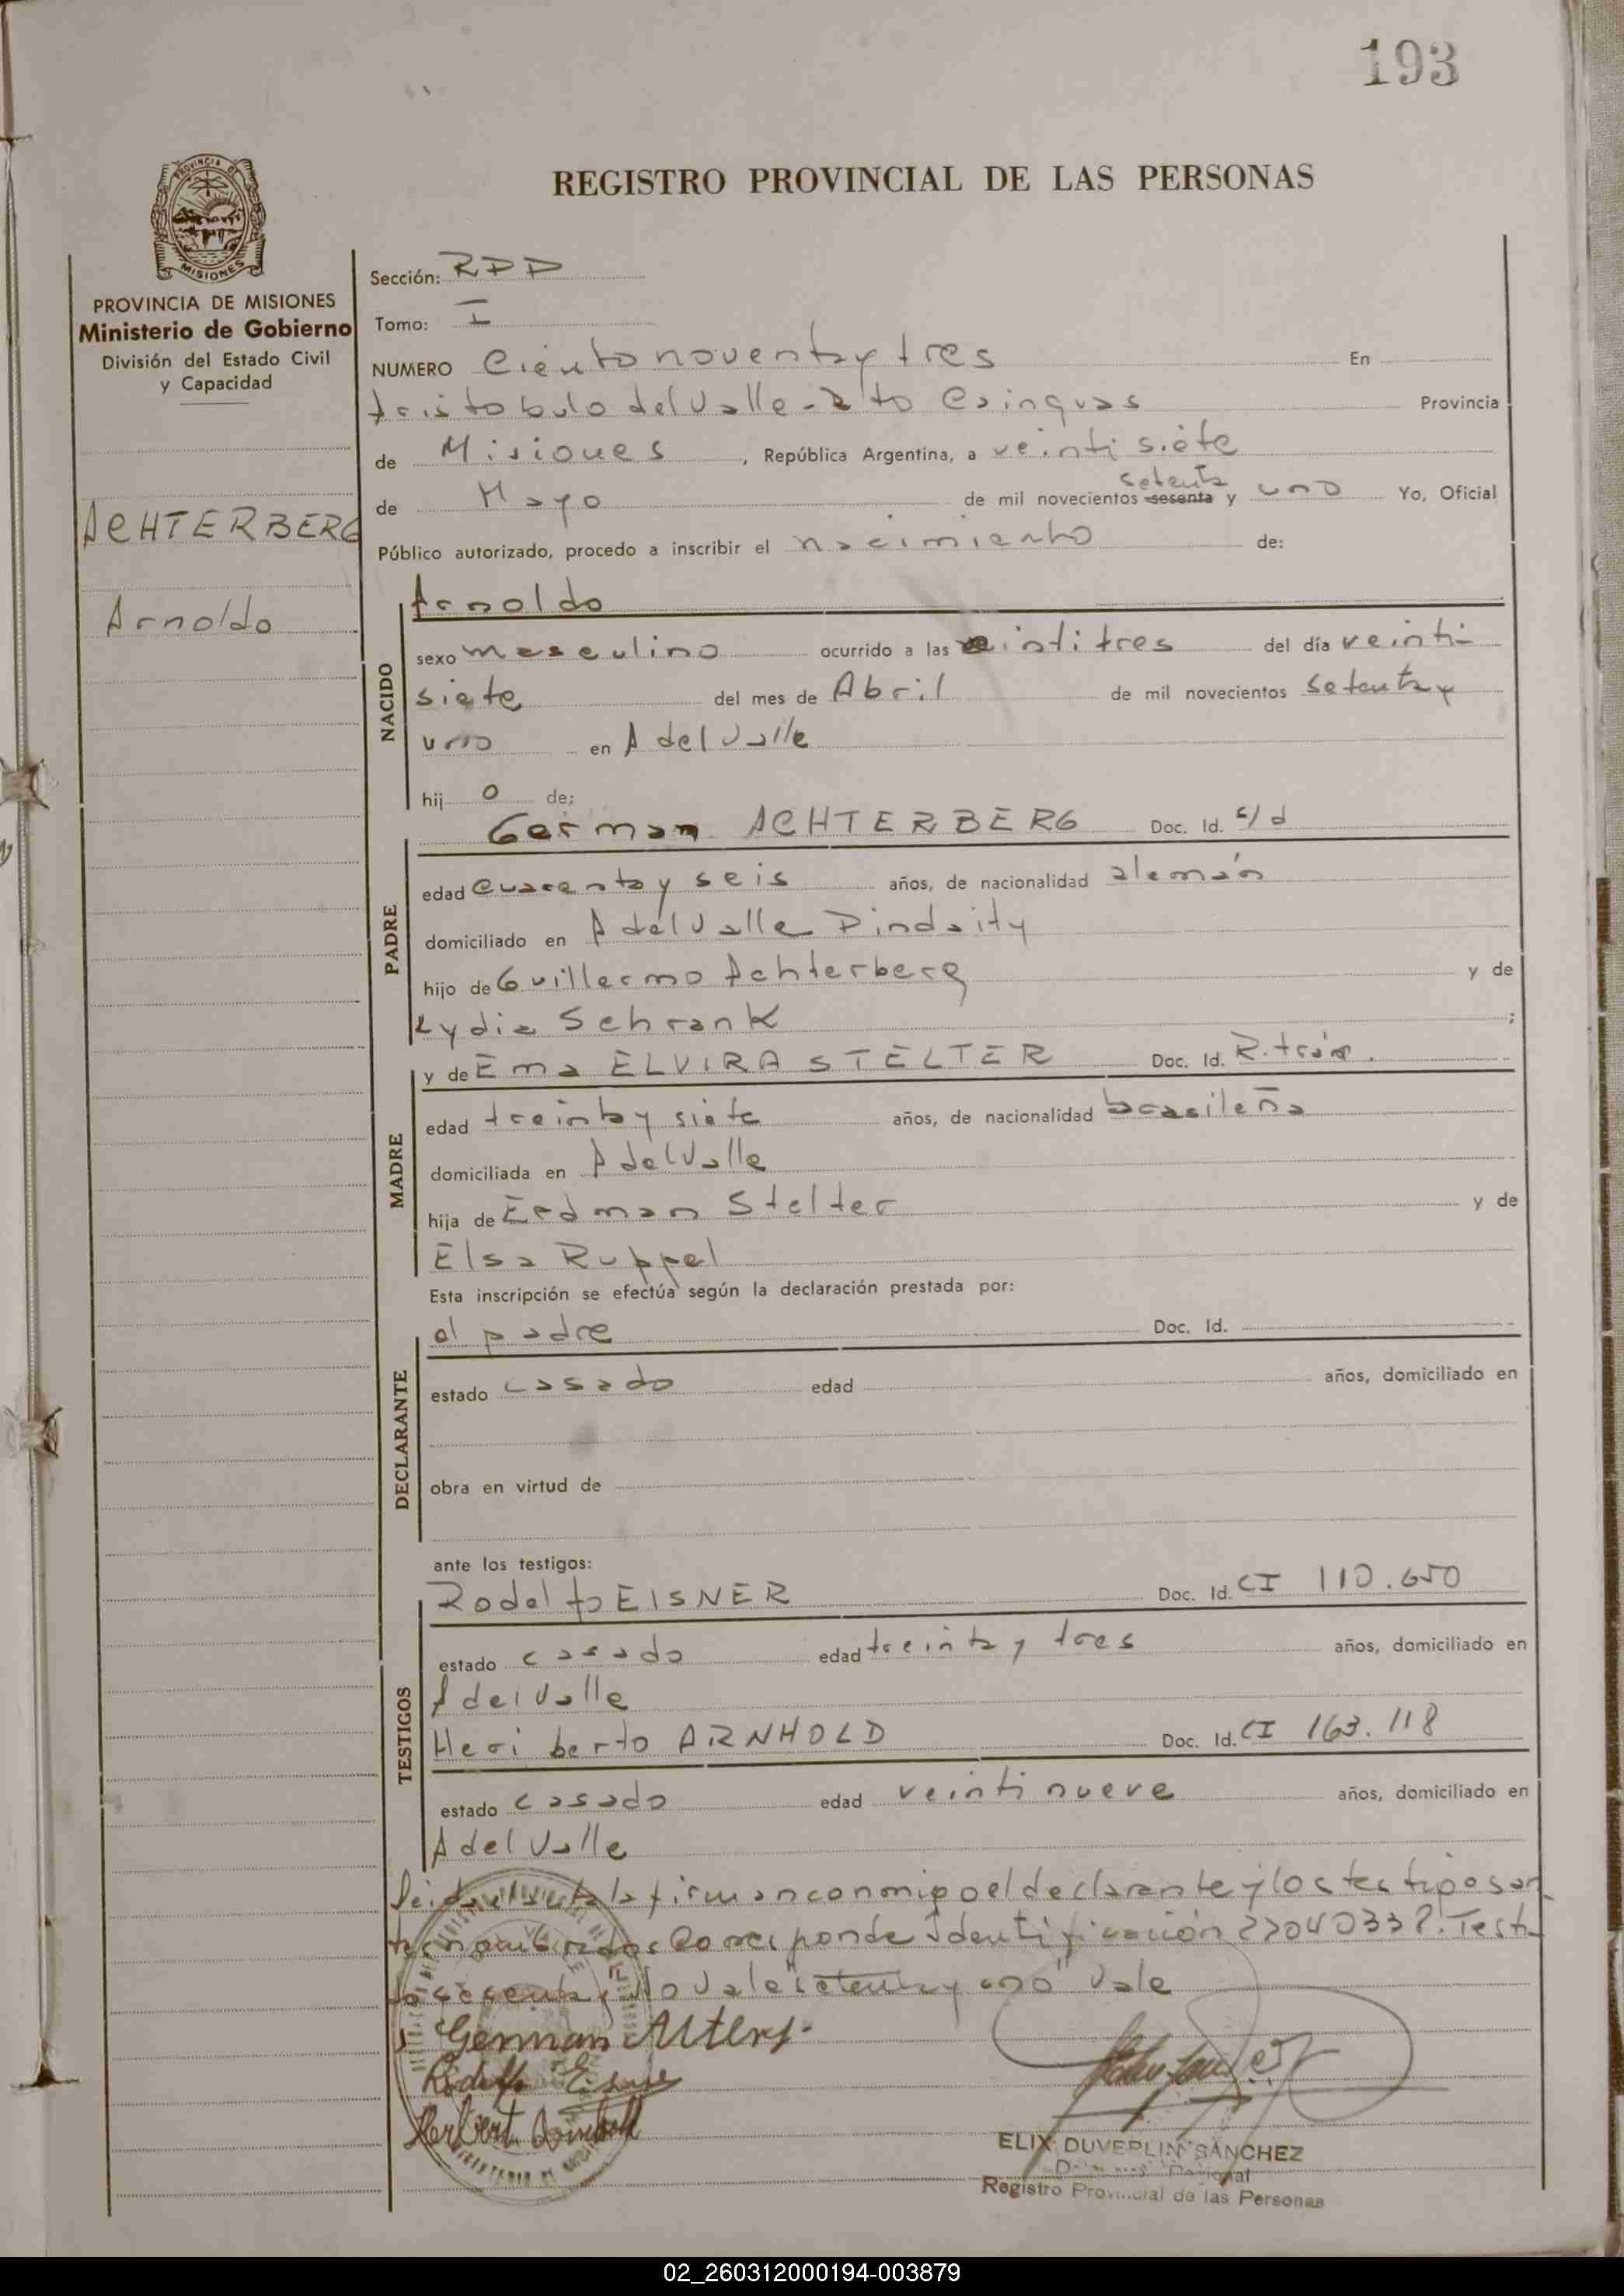 193
PROVINCIA DE
MISIONES
REGISTRO PROVINCIAL DE LAS PERSONAS
PROVINCIA DE MISIONES
Ministerio de Gobierno
División del Estado Civil
y Capacidad
ACHTERBERG
Arnoldo
Sección: RDD
Tomo: I
NUMERO Ciento noventa y tres En
Aristobulo del Valle - Alto Cainguas Provincia
de Misiones, República Argentina, a veinti siete
setenta
de Mayo de mil novecientos sesenta y uno Yo, Oficial
Público autorizado, procedo a inscribir el nacimiento de:
NACIDO
Arnoldo
sexo masculino ocurrido a las veintitres del día veinti-
siete del mes de Abril de mil novecientos setenta y
uno en A del Valle
hij o de;
German ACHTERBERG Doc. Id. s/d
PADRE
edad cuarenta y seis años, de nacionalidad alemán
domiciliado en A del Valle Pindaity
hijo de Guillermo Achterberg y de
Lydia Schrank ;
y de Ema ELVIRA STELTER Doc. Id. R. trám.
MADRE
edad treinta y siete años, de nacionalidad brasileña
domiciliada en A del Valle
hija de Erdman Stelter y de
Elsa Ruppel
Esta inscripción se efectúa según la declaración prestada por:
DECLARANTE
el padre Doc. Id.
estado casado edad años, domiciliado en
obra en virtud de
ante los testigos:
TESTIGOS
Rodolfo EISNER Doc. Id. CI 110.650
estado casado edad treinta y tres años, domiciliado en
A del Valle
Heriberto ARNHOLD Doc. Id. CI 163.118
estado casado edad veintinueve años, domiciliado en
A del Valle
Leida el acta la firman conmigo el declarante y los testigos an
tes nombrados Corresponde Identificación 22040338. Testa-
do sesenta No Vale "setenta y uno" Vale
German
Rodolfo Eisner
Herbert Arnhold
ELIX DUVERLIN SANCHEZ
Registro Provincial de las Personas
02_260312000194-003879